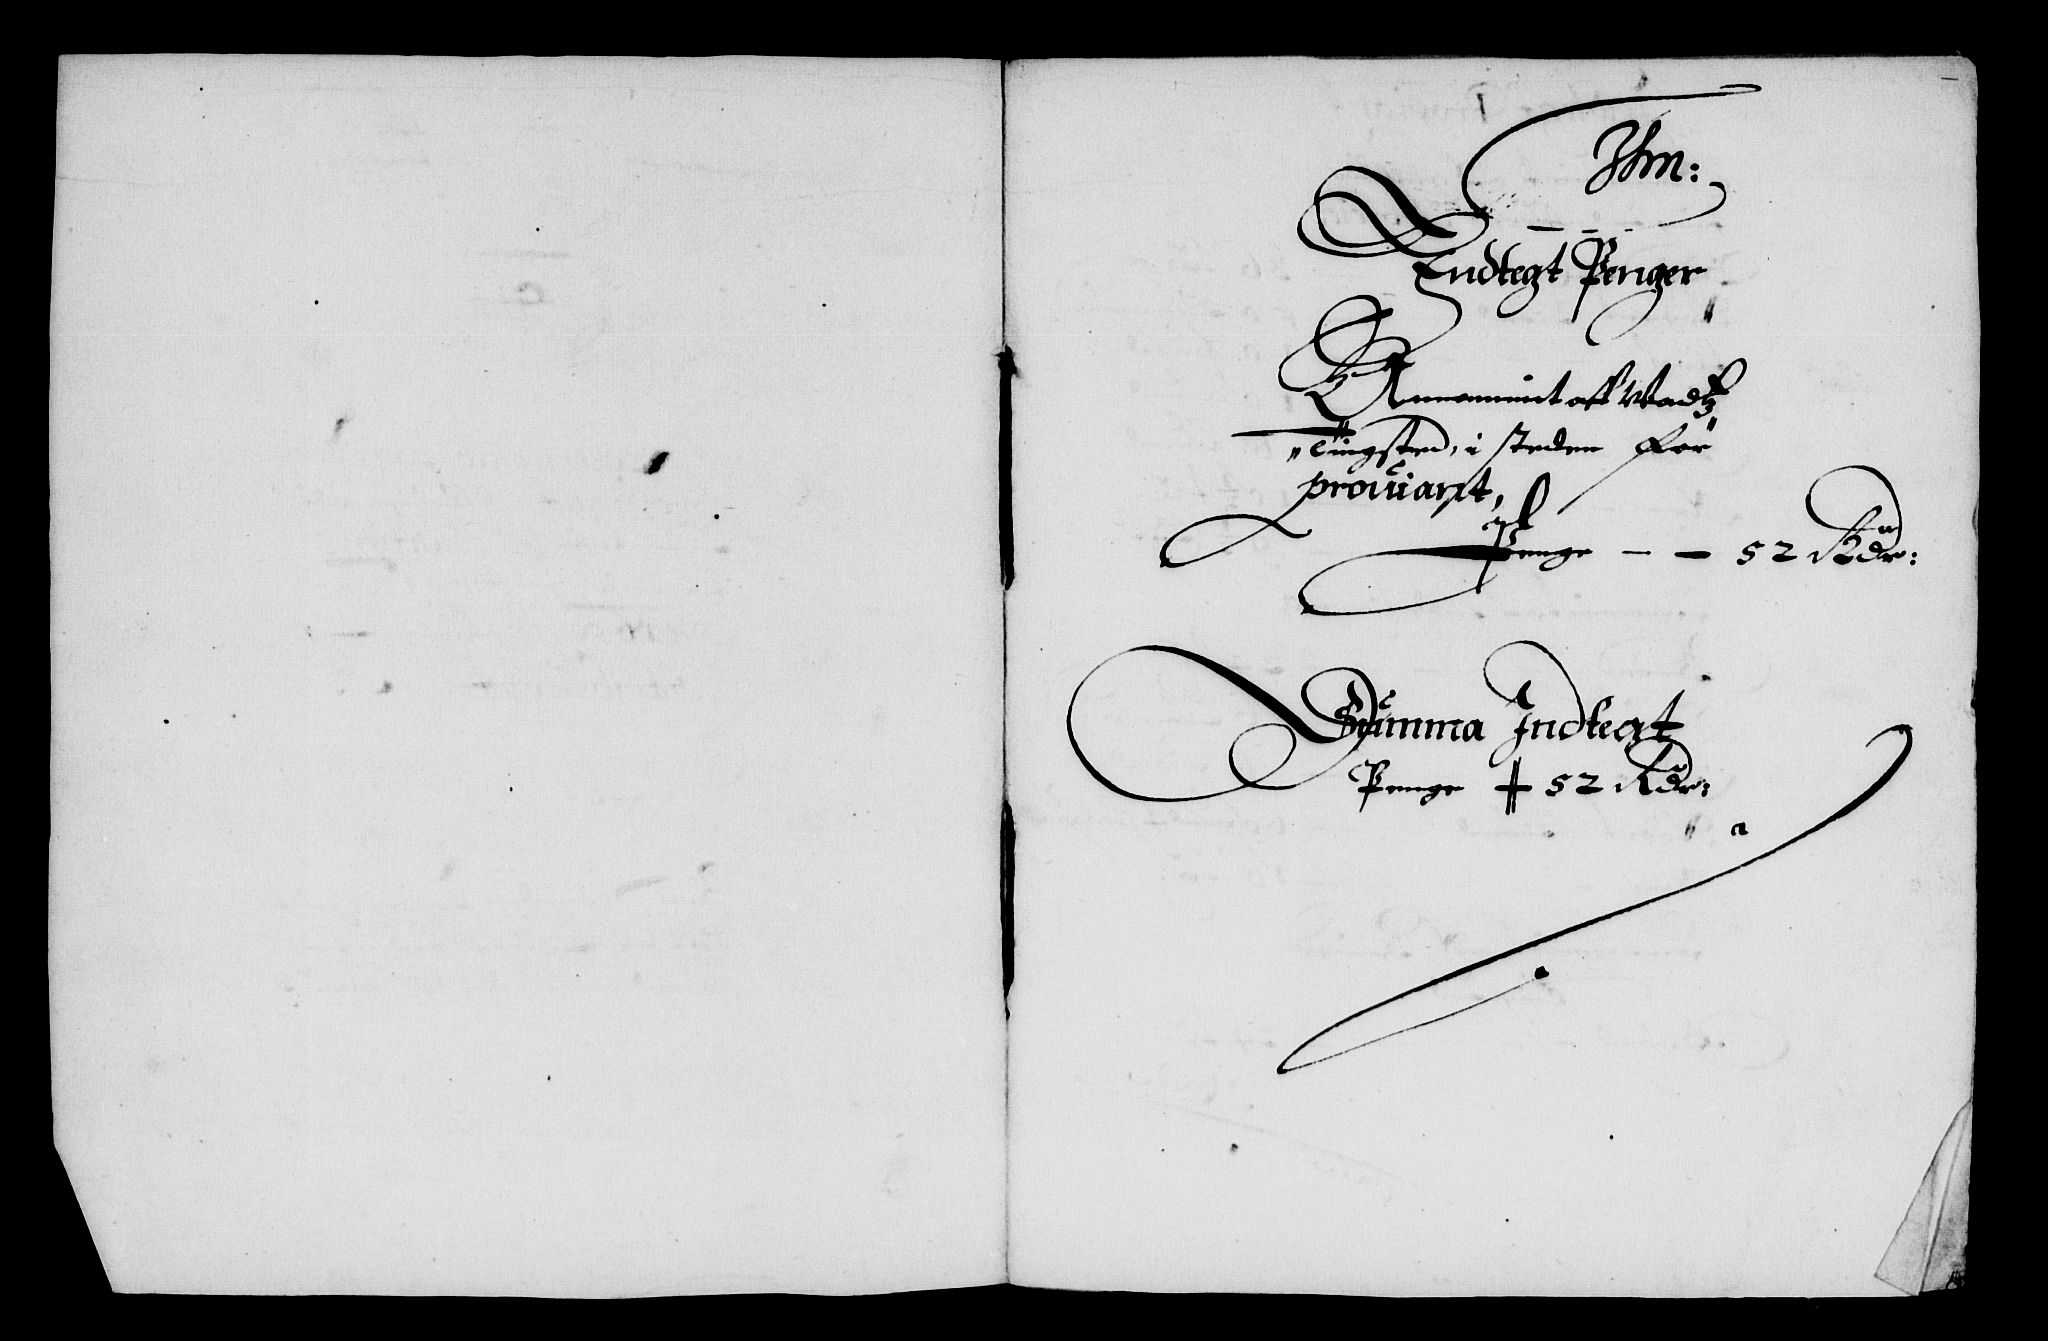 Indtegt Penger
Annammit aff Stadtz
Tingsted, i steden for
prouiant,
Penge - - 52 Rdr:
Summa Indtegt
Penge 52 Rdr: